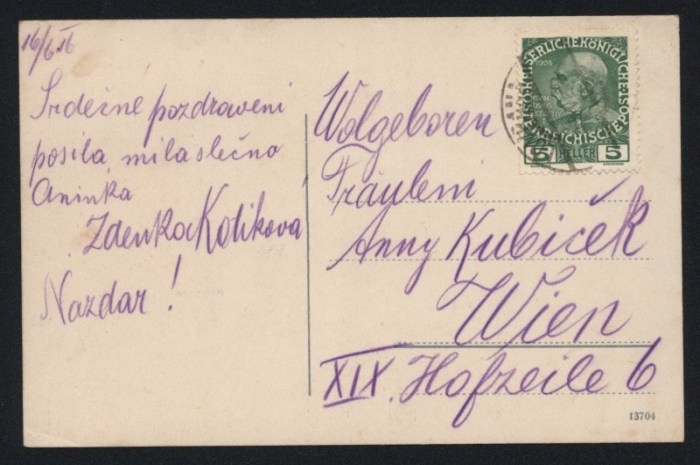 16/6 16
Srdečne pozdraweni
posila milaslečno
Aninka
Zdenka Kolikova
Nazdar!
Wolgeboren
Fräulein
Anny Kubiček
Wien
XIX. Hofzeile 6
KAISERLICHE KÖNIGLICHE
ÖSTERREICHISCHE POST
5 HELLER 5
1908
13704